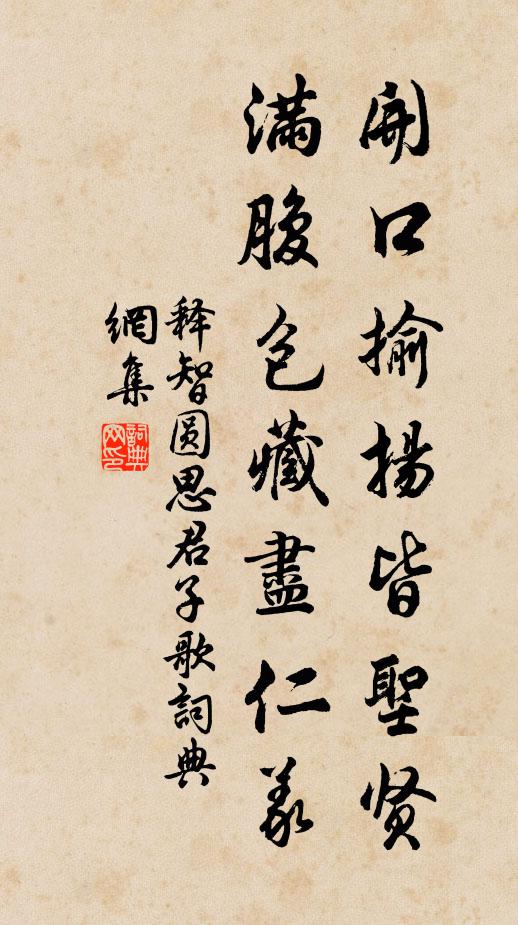 開口揄揚皆聖贤
滿腹包藏盡仁義
释智圆思君子歌詞典
網集
詞典
网印